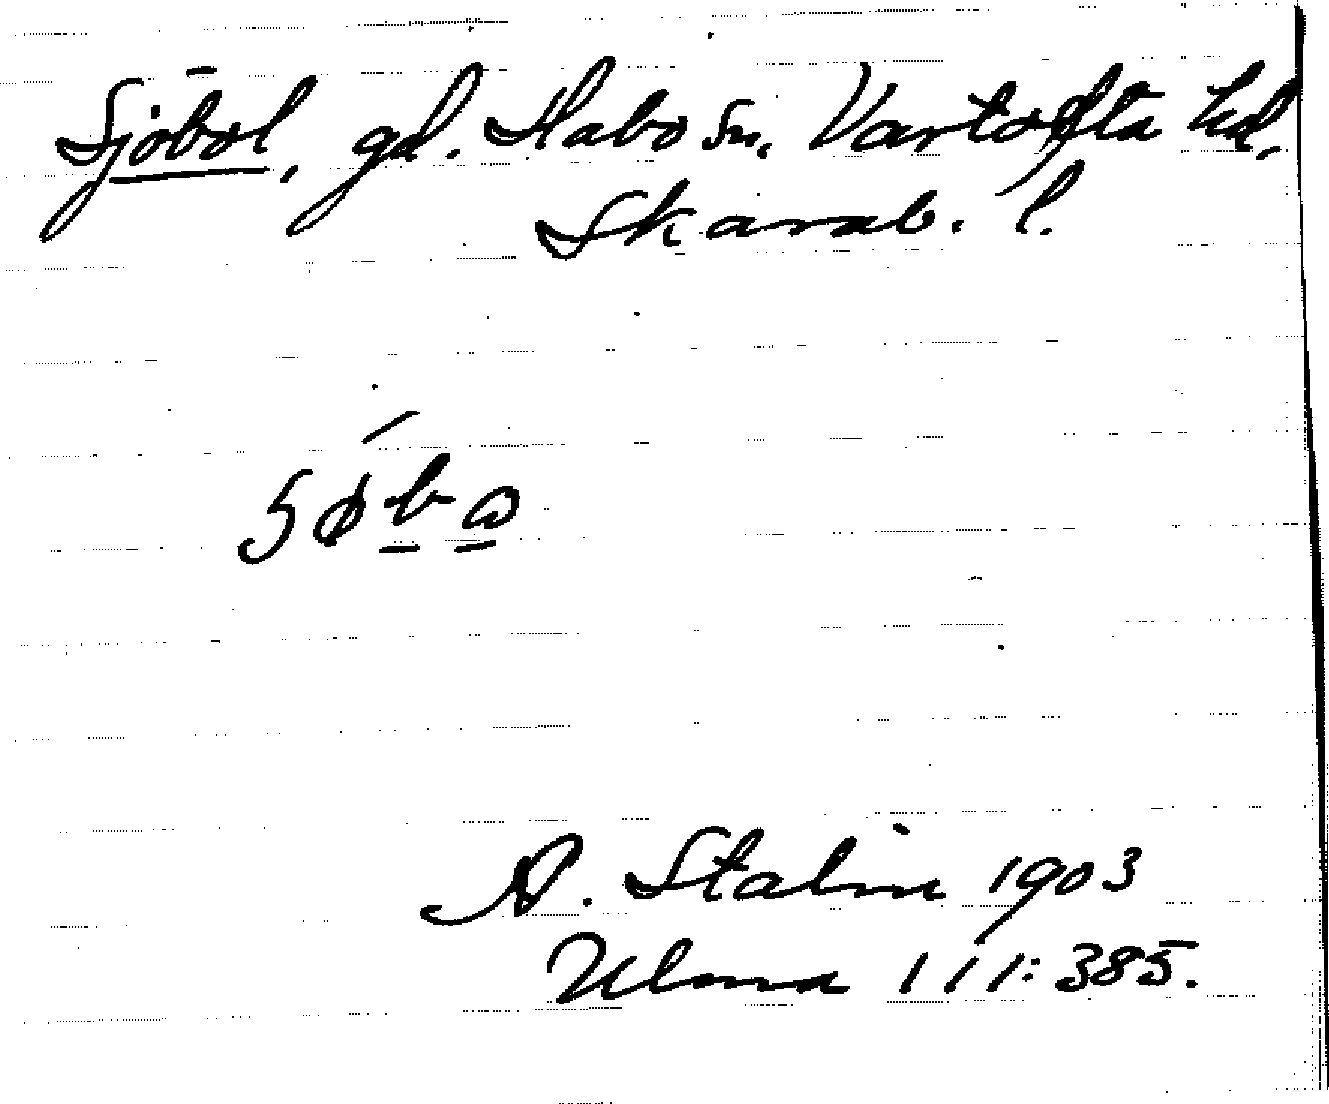 Sjöbol, gd. Habo sn. Vartofta hd,
Skarab. l.
A. Stalin 1903
Ulma 111:385.